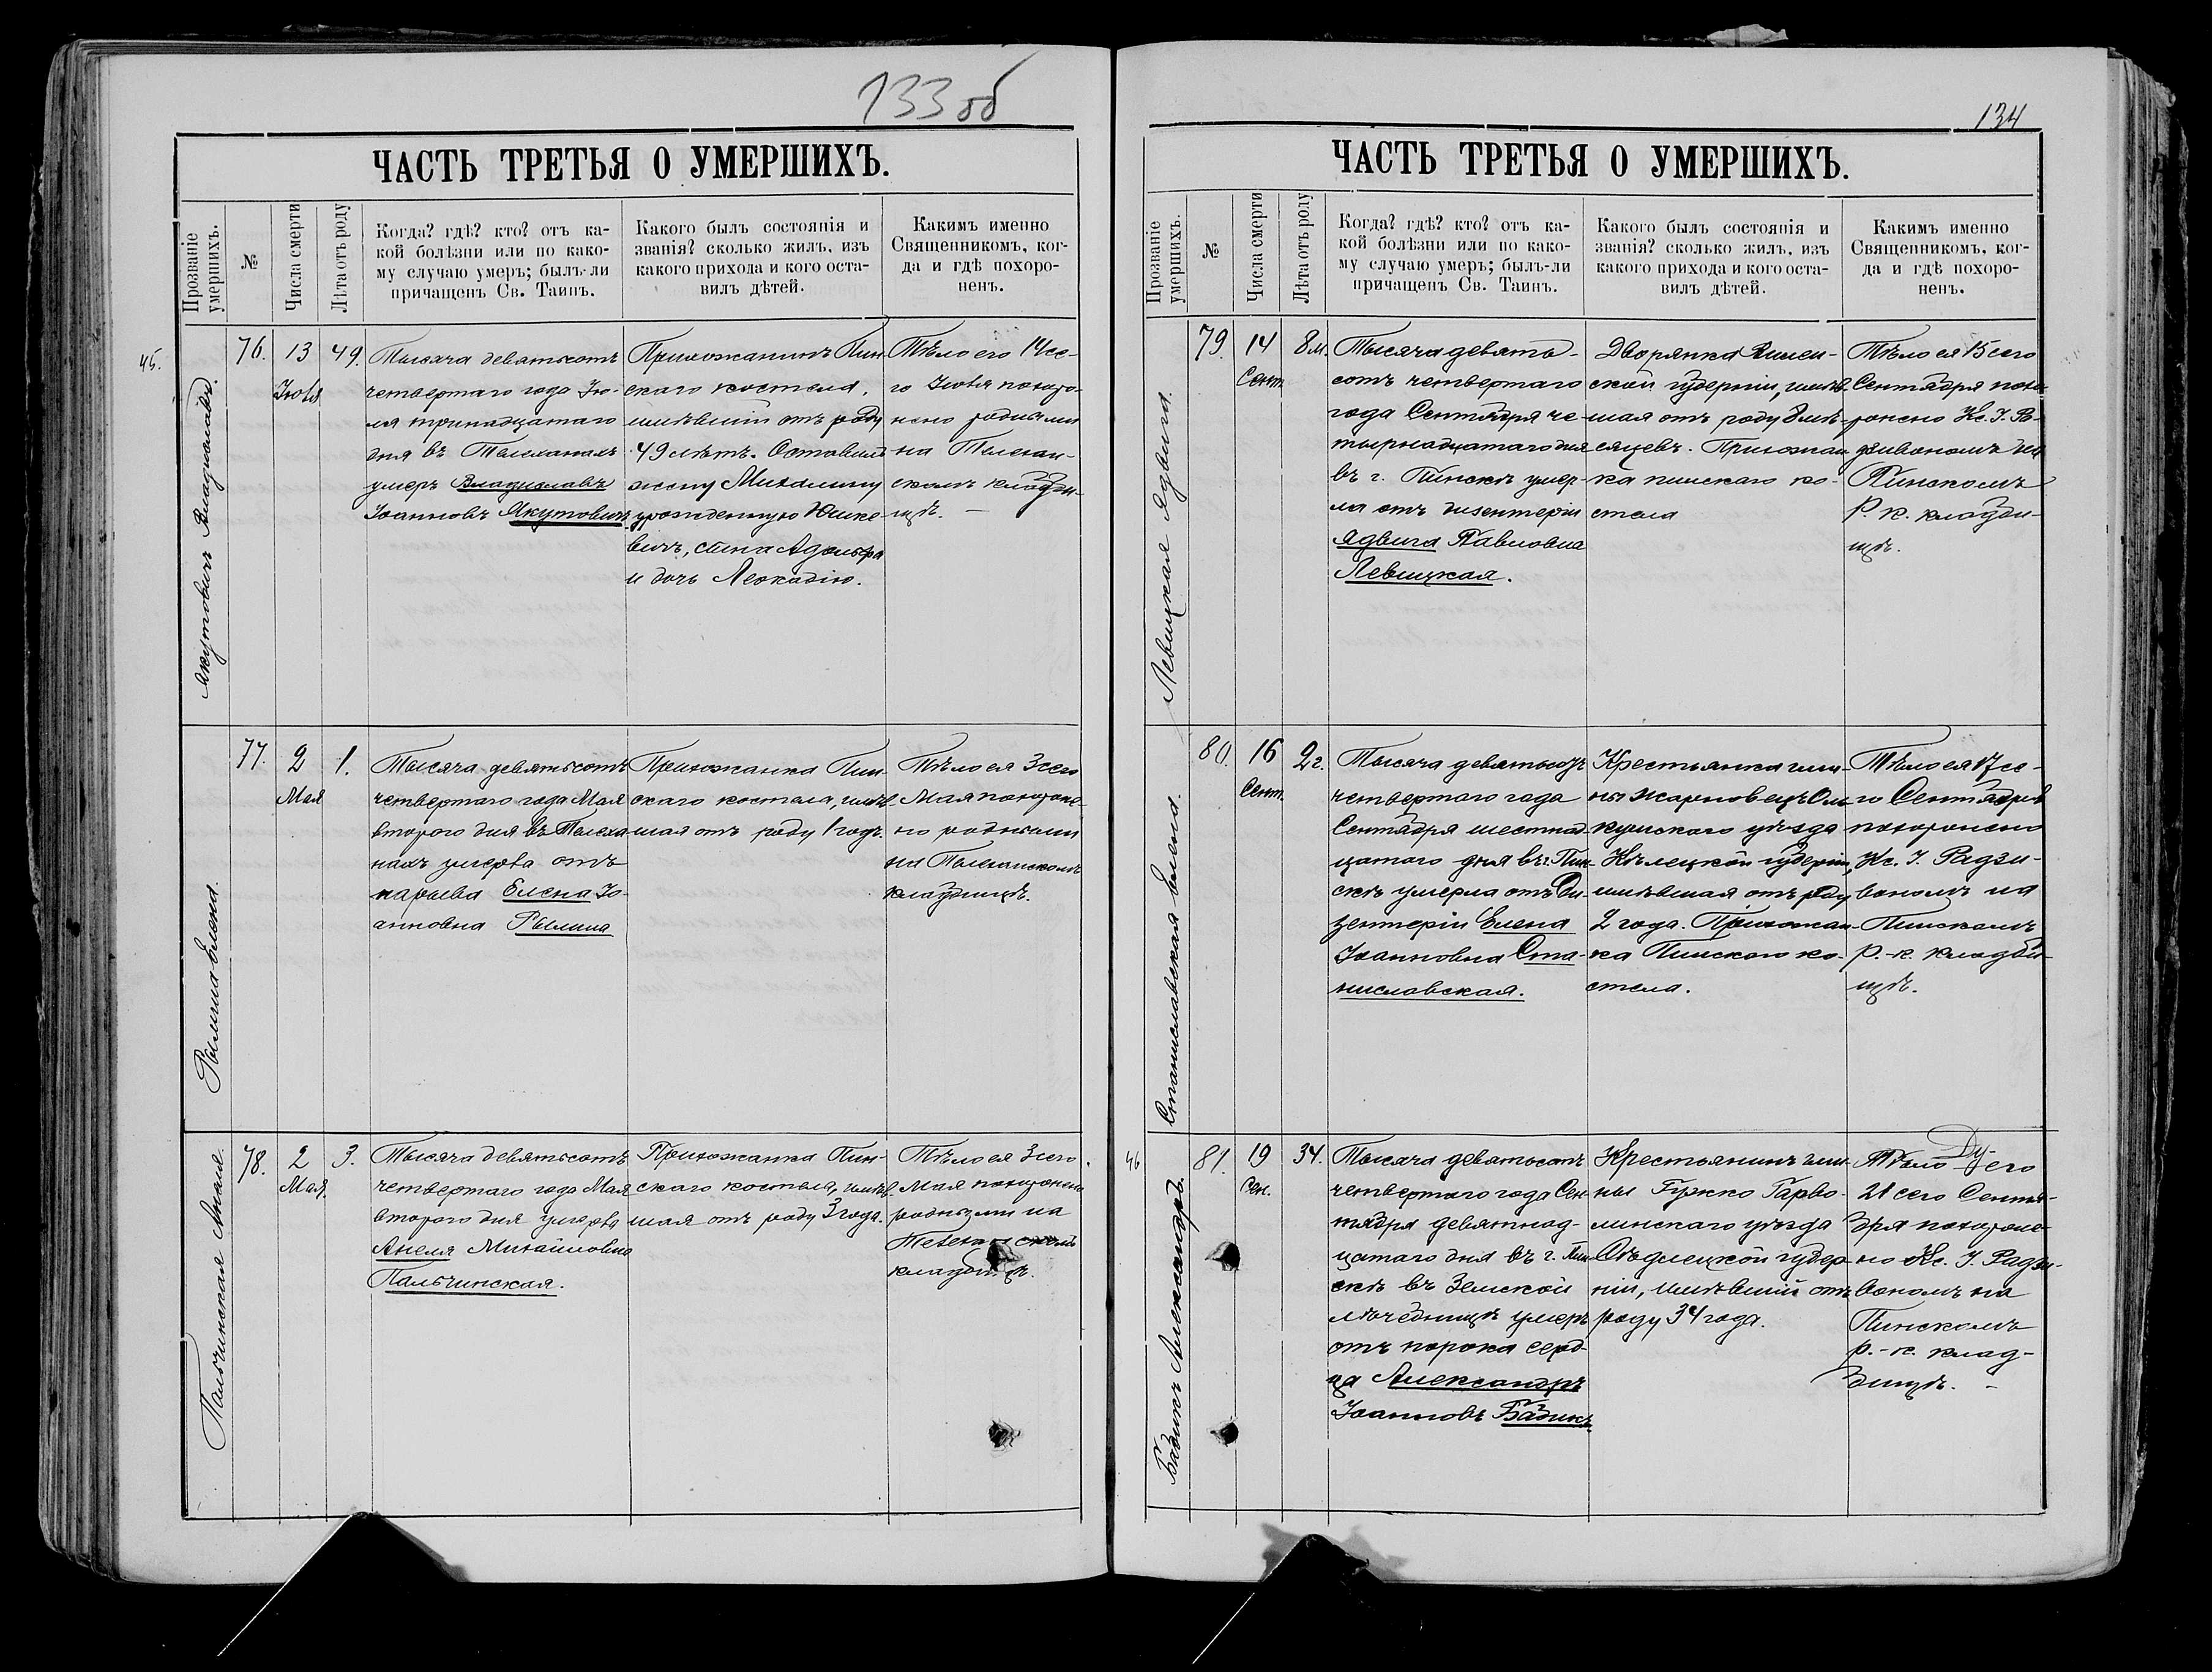 133 об
ЧАСТЬ ТРЕТЬЯ О УМЕРШИХЪ.
Прозваніе умершихъ.
№
Числа смерти
Лѣта отъ роду
Когда? гдѣ? кто? отъ ка-
кой болѣзни или по како-
му случаю умеръ; былъ-ли
причащенъ Св. Таинъ.
Какого былъ состоянія и
званія? сколько жилъ, изъ
какого прихода и кого оста-
вилъ дѣтей.
Какимъ именно
Священникомъ, ког-
да и гдѣ похоро-
ненъ.
45.
Якутовичъ Владиславъ.
76.
13
Іюля
49.
Тысяча девятьсотъ
четвертаго года Ію-
ля тринадцатаго
дня въ Телеханахъ
умеръ Владиславъ
Іоанновъ Якутовичъ
Прихожанинъ Пин-
скаго костела,
имѣвшій отъ роду
49 лѣтъ. Оставилъ
жену Михалину
урожденную
вичъ, сына Адольфа
и дочь Леокадію.
Тѣло его 14 се-
го Іюля похоро-
нено родными
на Телехан-
скомъ кладби-
щѣ. —
Рылина Елена.
77.
2
Мая
1.
Тысяча девятьсотъ
четвертаго года Мая
второго дня въ Телеха-
нахъ умерла отъ
нарыва Елена Іо-
анновна Рылина
Прихожанка Пин-
скаго костела, имѣв-
шая отъ роду 1 годъ.
Тѣло ея 3 сего
Мая похороне-
но родными
на Телеханскомъ
кладбищѣ.
Пальчинская Анеля.
78.
2
Мая.
3.
Тысяча девятьсотъ
четвертаго года Мая
второго дня умерла
Анеля Михайловна
Пальчинская.
Прихожанка Пин-
скаго костела, имѣв-
шая отъ роду 3 года.
Тѣло ея 3 сего
Мая похоронено
родными на
Телеханскомъ
кладбищѣ.
134
ЧАСТЬ ТРЕТЬЯ О УМЕРШИХЪ.
Прозваніе умершихъ.
№
Числа смерти
Лѣта отъ роду
Когда? гдѣ? кто? отъ ка-
кой болѣзни или по како-
му случаю умеръ; былъ-ли
причащенъ Св. Таинъ.
Какого былъ состоянія и
званія? сколько жилъ, изъ
какого прихода и кого оста-
вилъ дѣтей.
Какимъ именно
Священникомъ, ког-
да и гдѣ похоро-
ненъ.
Левицкая Ядвига.
79.
14
Сент.
8 м.
Тысяча девять-
сотъ четвертаго
года Сентября че-
тырнадцатаго дня
въ г. Пинскѣ умер-
ла отъ дизентеріи
Ядвига Павловна
Левицкая.
Дворянка
ской губерніи, имѣв-
шая отъ роду 8 мѣ-
сяцевъ. Прихожан-
ка пинскаго ко-
стела
Тѣло ея 15 сего
Сентября похо-
ронено Кс. І. Ра-
дзивономъ на
Пинскомъ
р. к. кладби-
щѣ.
Станиславская Елена.
80.
16
Сент.
2 г.
Тысяча девятьсотъ
четвертаго года
Сентября шестнад-
цатаго дня въ г. Пин-
скѣ умерла отъ Ди-
зентеріи Елена
Іоанновна Ста-
ниславская.
Крестьянка гми-
ны Жарновецъ Оль-
кушскаго уѣзда
Кѣлецкой губерніи,
имѣвшая отъ роду
2 года. Прихожан-
ка Пинскаго ко-
стела.
Тѣло ея 17 се-
го Сентября
похоронено
Кс. І. Радзи-
вономъ на
Пинскомъ
р.-к. кладби-
щѣ.
46
Бадикъ Александръ.
81.
19
Сен.
34.
Тысяча девятьсотъ
четвертаго года Сен-
тября девятнад-
цатаго дня въ г. Пин-
скѣ въ Земской
лѣчебницѣ умеръ
отъ порока серд-
ца Александръ
Іоанновъ Бадикъ.
Крестьянинъ гми-
ны Гужко Гарво-
линскаго уѣзда
Сѣдлецкой губер-
ніи, имѣвшій отъ
роду 34 года.
Тѣло его
21 сего Сентя-
бря похороне-
но Кс. І. Радзи-
вономъ на
Пинскомъ
р.-к. клад-
бищѣ. —